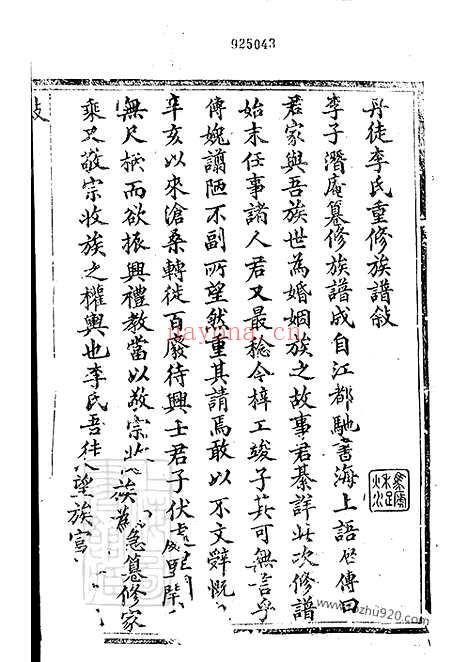 925043
丹徒李氏重修族譜敍
李子潛庵纂修族譜成自江都馳書海上語傳曰
君家與吾族世為婚姻族之故事君綦詳此次修譜
始末任事諸人君又最稔令梓工竣子其可無言乎
傳婉謭陋不副所望然重其請焉敢以不文辭慨
辛亥以來滄桑轉徙百廢待興士君子伏處里閈
無尺柄而欲振興禮教當以敬宗收族為急纂修家
乘又敬宗收族之權輿也李氏吾徒望族
敍
hayhna.cn
shuzhu920.com